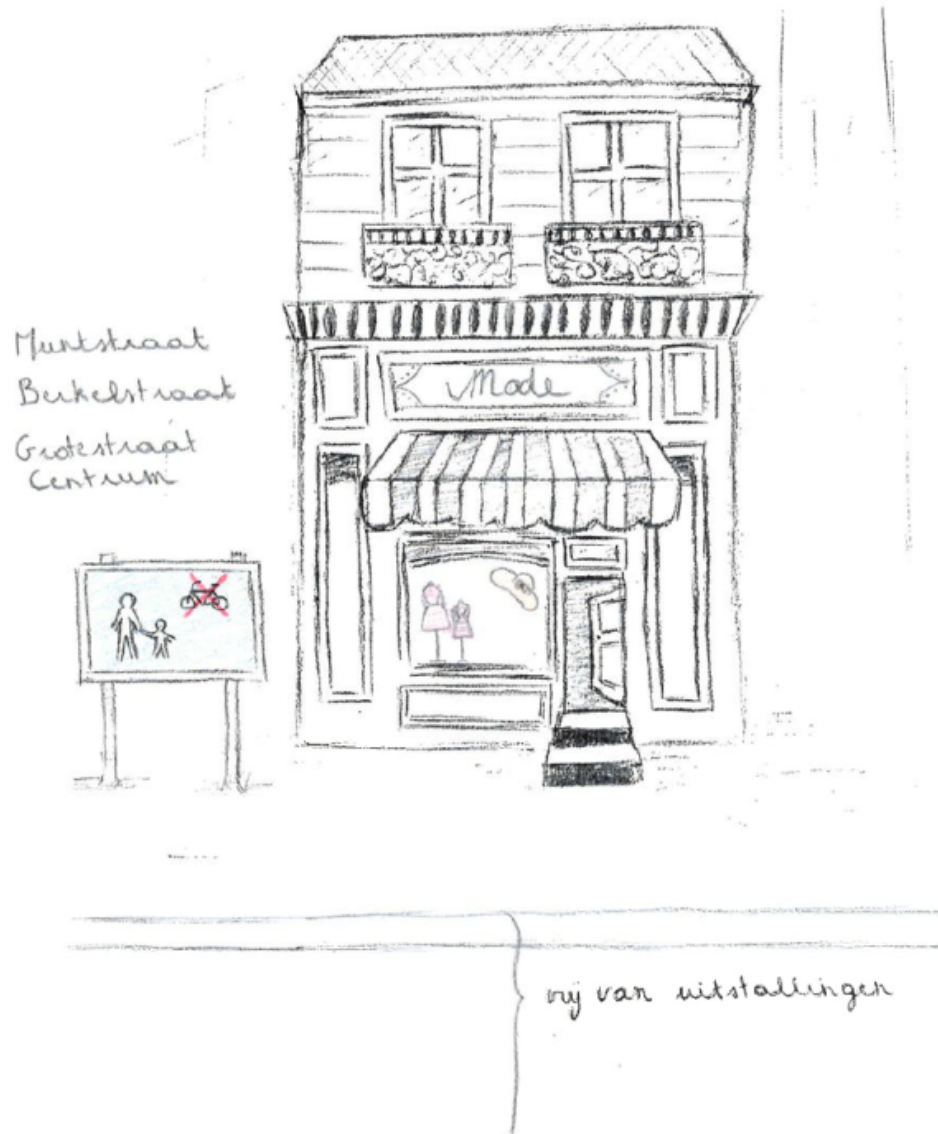 Muntstraat
Berkelstraat
Grotestraat
Centrum
Mode
vrij van uitstallingen